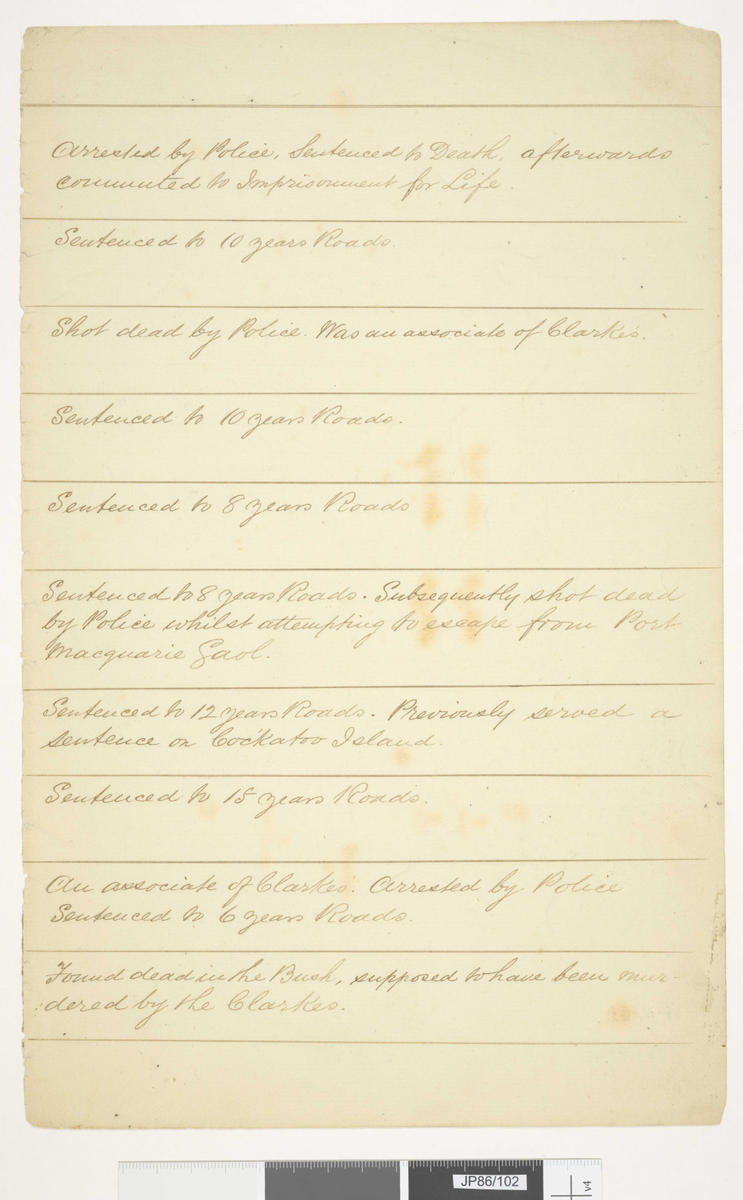 Arrested by Police, Sentenced to Death, afterwards
commuted to Imprisonment for Life.
Sentenced to 10 years Roads.
Shot dead by Police. Was an associate of Clarke's.
Sentenced to 10 years Roads.
Sentenced to 8 years Roads
Sentenced to 8 years Roads. Subsequently shot dead
by Police whilst attempting to escape from Port
Macquarie Gaol.
Sentenced to 12 years Roads. Previously served a
sentence on Cockatoo Island.
Sentenced to 15 years Roads.
An associate of Clarkes'. Arrested by Police
Sentenced to 6 years Roads.
Found dead in the Bush, supposed to have been mur-
dered by the Clarkes.
JP86/102
v4